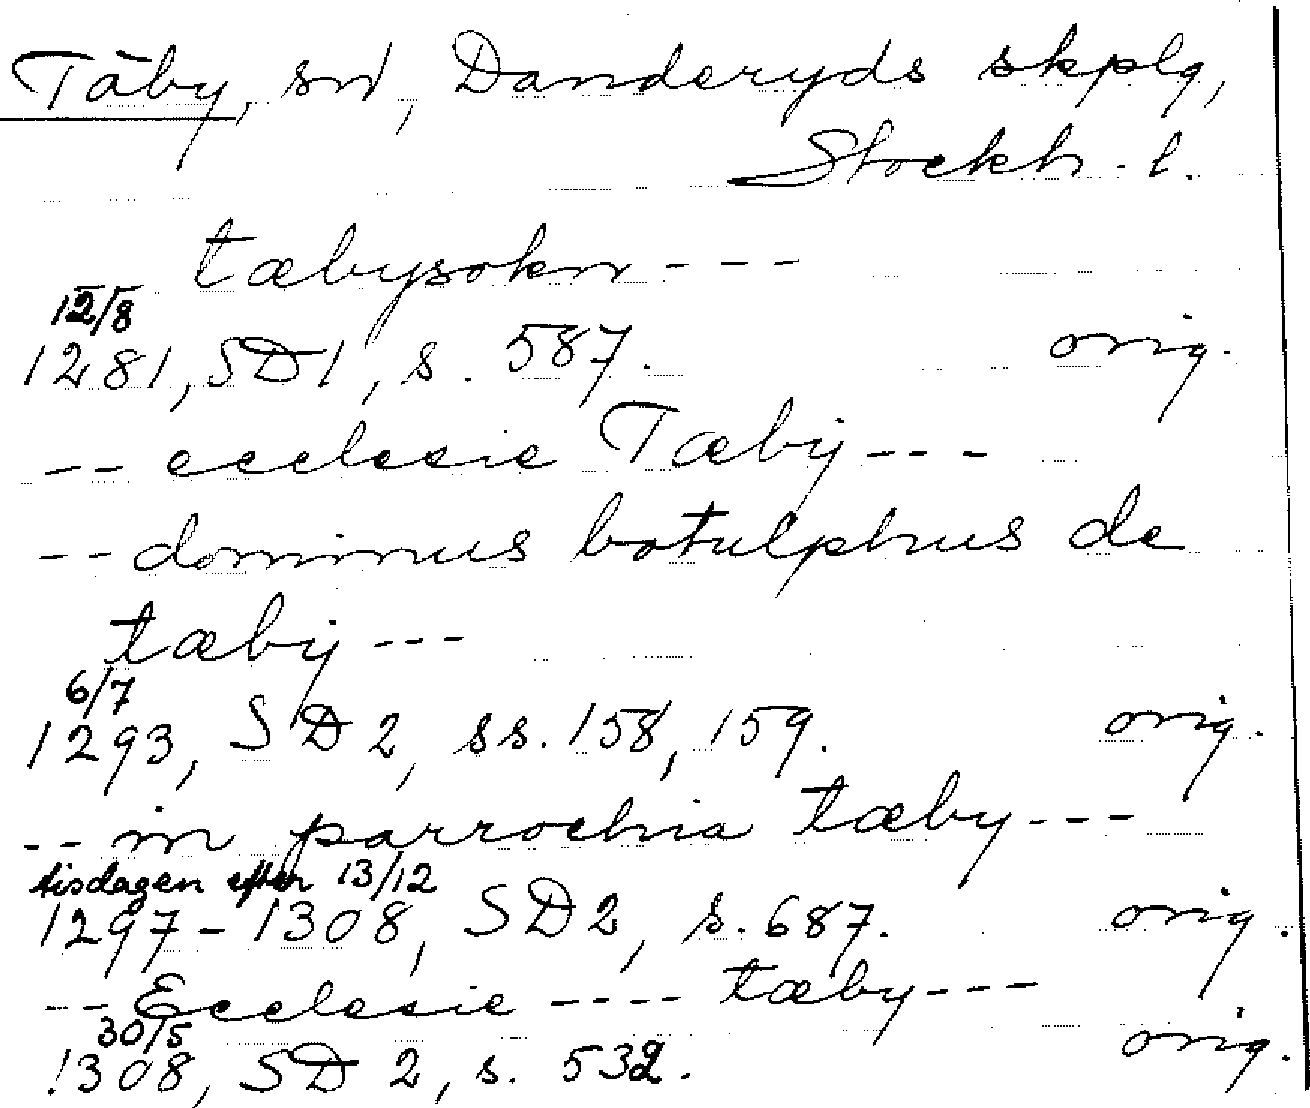 Täby, sn, Danderyds skplg,
Stockh. l.
tæbysokn ---
12/8
1281, SD1, s. 587. orig.
-- ecclesie Tæbij ---
-- dominus botulphus de
tæbij ---
6/7
1293, SD 2, ss. 158, 159. orig.
-- in parrochia tæby ---
tisdagen efter 13/12
1297-1308, SD2, s. 687. orig.
-- Ecclesie ---- tæby ---
30/5
1308, SD 2, s. 532. orig.